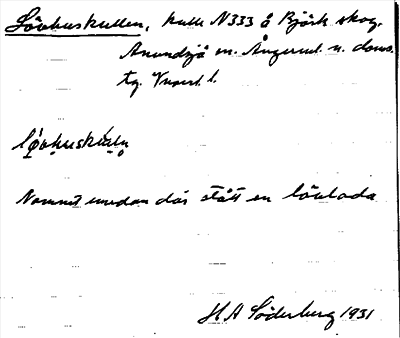 Lövhuskullen, kulle N333 å Björk. skog,
Anundsjö sn. Ångerml. n. doms.
tg. Vnorrl. l.
Namnet emedan där stått en lövlada
H A Söderberg 1931